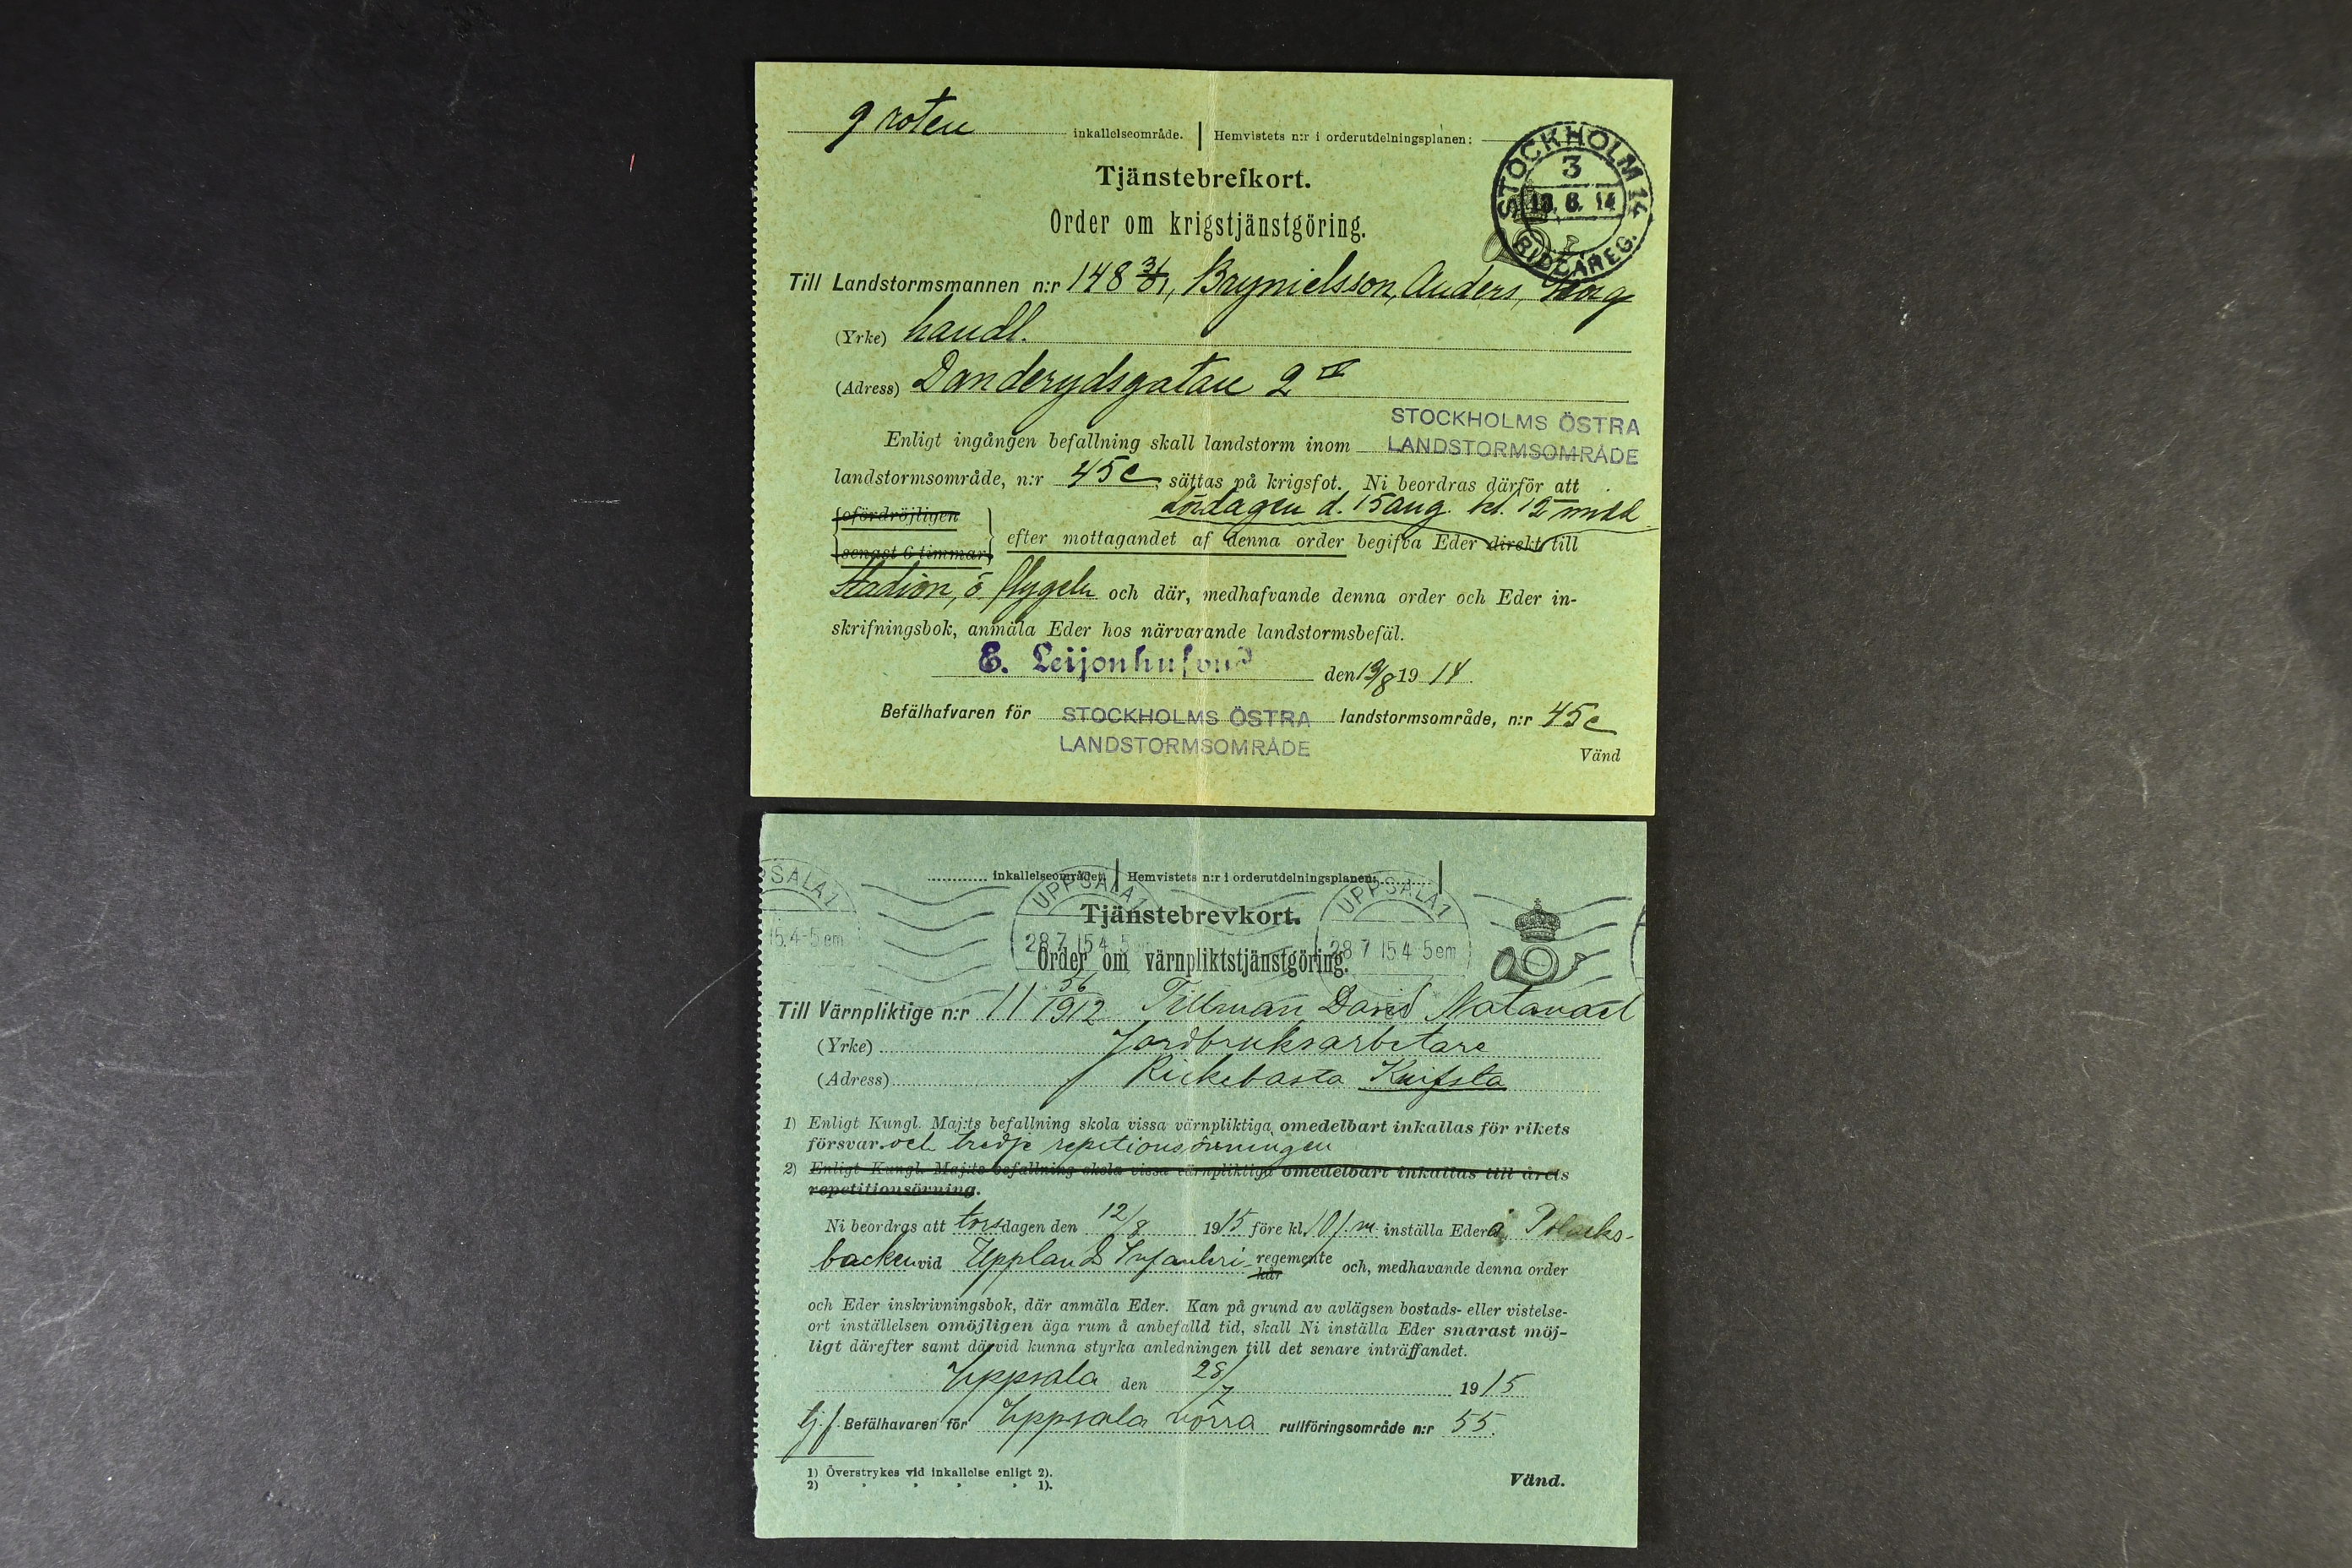 9 roten inkallelseområde. Hemvistets n:r i orderutdelningsplanen:
STOCKHOLM 14
3
13. 8. 14
RIDDAREG.
Tjänstebrefkort.
Order om krigstjänstgöring.
Till Landstormsmannen n:r 148 Brynielsson, Anders,
(Yrke) handl.
(Adress) Danderydsgatan 2 IV
STOCKHOLMS ÖSTRA
Enligt ingången befallning skall landstorm inom LANDSTORMSOMRÅDE
landstormsområde, n:r 45c, sättas på krigsfot. Ni beordras därför att
lördagen d. 15 aug. kl. 12 midd.
ofördröjligen
senast 6 timmar
efter mottagandet af denna order begifva Eder direkt till
Stadion, ö. flygeln och där, medhafvande denna order och Eder in-
skrifningsbok, anmäla Eder hos närvarande landstormsbefäl.
E. Leijonhufvud den /8 1914.
Befälhafvaren för STOCKHOLMS ÖSTRA landstormsområde, n:r 45c
LANDSTORMSOMRÅDE
Vänd
inkallelseområdet. Hemvistets n:r i orderutdelningsplanen:
UPPSALA 1 UPPSALA 1
Tjänstebrevkort.
15.4-5em 28 7 15 4-5 28 7 15 4-5em
Order om värnpliktstjänstgöring.
Till Värnpliktige n:r 11 56/1912 Tillman David Natanael
(Yrke) Jordbruksarbetare
(Adress) Rickebasta Knifsta
1) Enligt Kungl. Maj:ts befallning skola vissa värnpliktiga omedelbart inkallas för rikets
försvar. och tredje repetionsövningen
2) Enligt Kungl. Maj:ts befallning skola vissa värnpliktiga omedelbart inkallas till årets
repetitionsövning.
Ni beordras att torsdagen den 12/8 1915 före kl. 10 f.m. inställa Eder å Polacks-
backen vid Upplands Infanteri regemente och, medhavande denna order
kår
och Eder inskrivningsbok, där anmäla Eder. Kan på grund av avlägsen bostads- eller vistelse-
ort inställelsen omöjligen äga rum å anbefalld tid, skall Ni inställa Eder snarast möj-
ligt därefter samt därvid kunna styrka anledningen till det senare inträffandet.
Uppsala den 28/7 1915
tj. f. Befälhavaren för Uppsala norra rullföringsområde n:r 55.
1) Överstrykes vid inkallelse enligt 2).
2) » » » » 1).
Vänd.